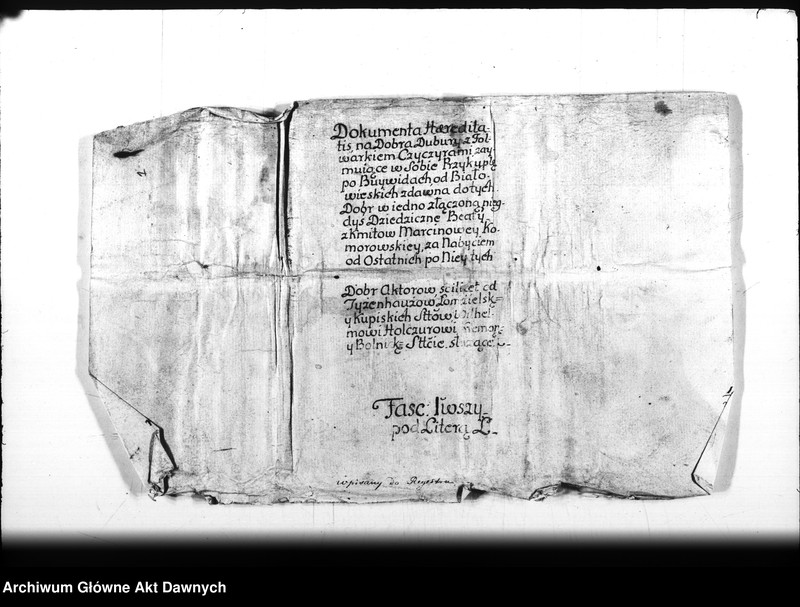 Dokumenta Hæredita-
tis, na Dobra Dubury, z Fol-
warkiem Czyczyrami, zay-
muiące w Sobie Przykuplę
po Buywidach, od Biało-
wieskich zdawna dotych
Dobr w iedno złączoną, nieg-
dys Dziedziczne Beaty
z Kmitow Marcinowey Ko-
morowskiey, za Nabyciem
od Ostatnich po Niey tych
Dobr Aktorow, scilicet od
Tyzenhauzow
y Kupiskich Sttów Wilhel-
mowi Holczurowi
y Bolnick: Sttcie, służące.
Fasc: 1wszy
pod Literą L.
wpisany do Regestru
Archiwum Główne Akt Dawnych